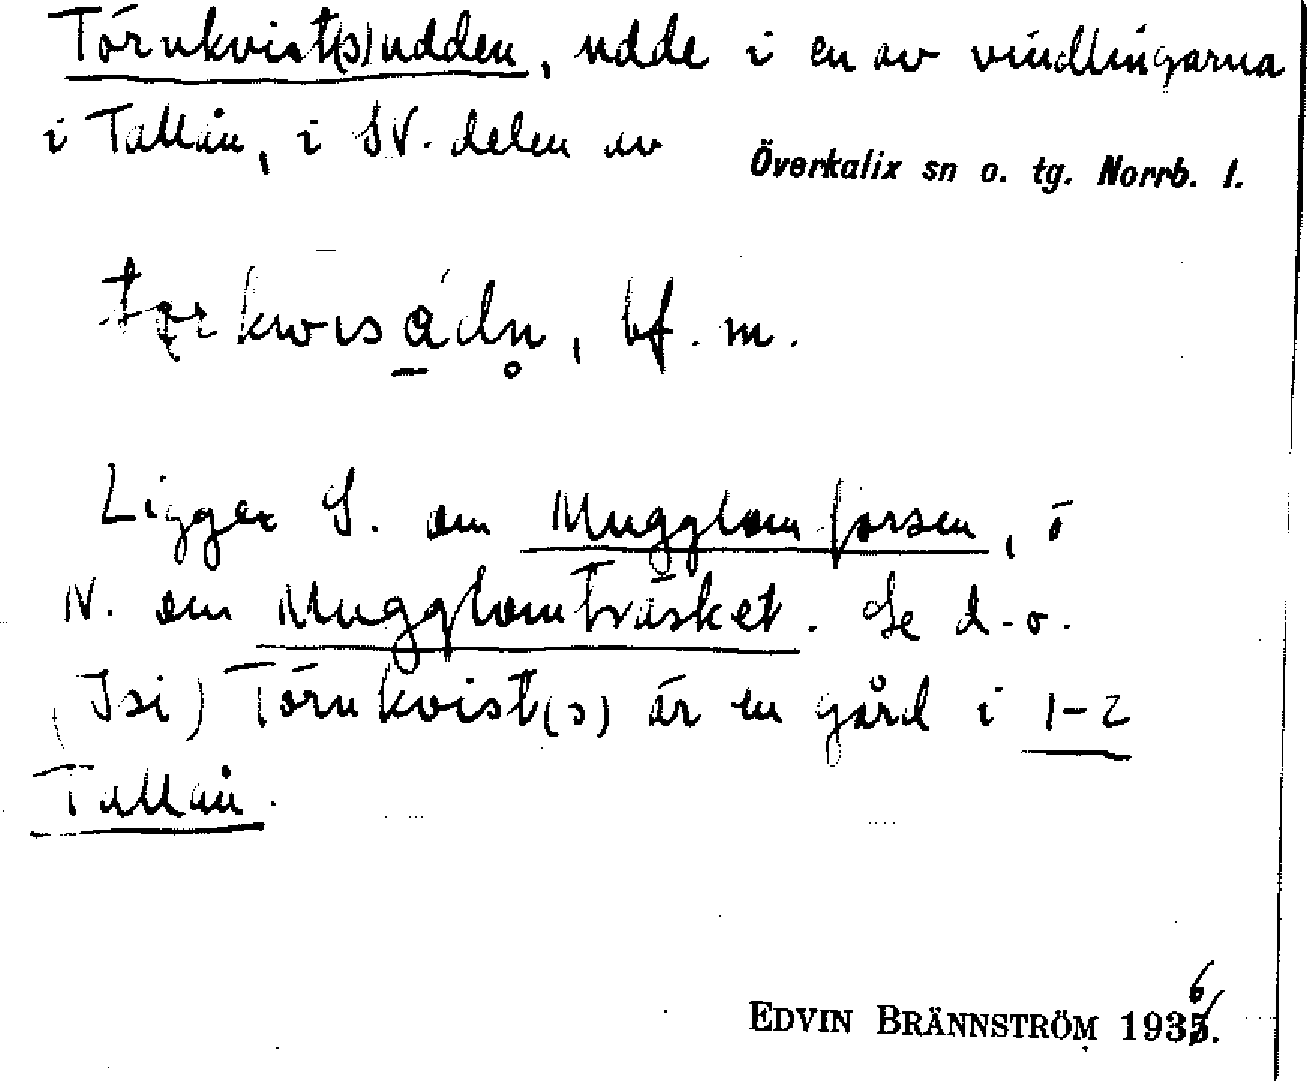 Törnkvist(s)udden, udde i en av vindlingarna
i Tallån, i SV. delen av Överkalix sn o. tg. Norrb. l.
bf. m.
Ligger S. om Mugglomforsen, o
N. om Mugglomträsket. Se d. o.
(Isi) Törnkvist(s) är en gård i 1-2
Tallån.
EDVIN BRÄNNSTRÖM 1936.